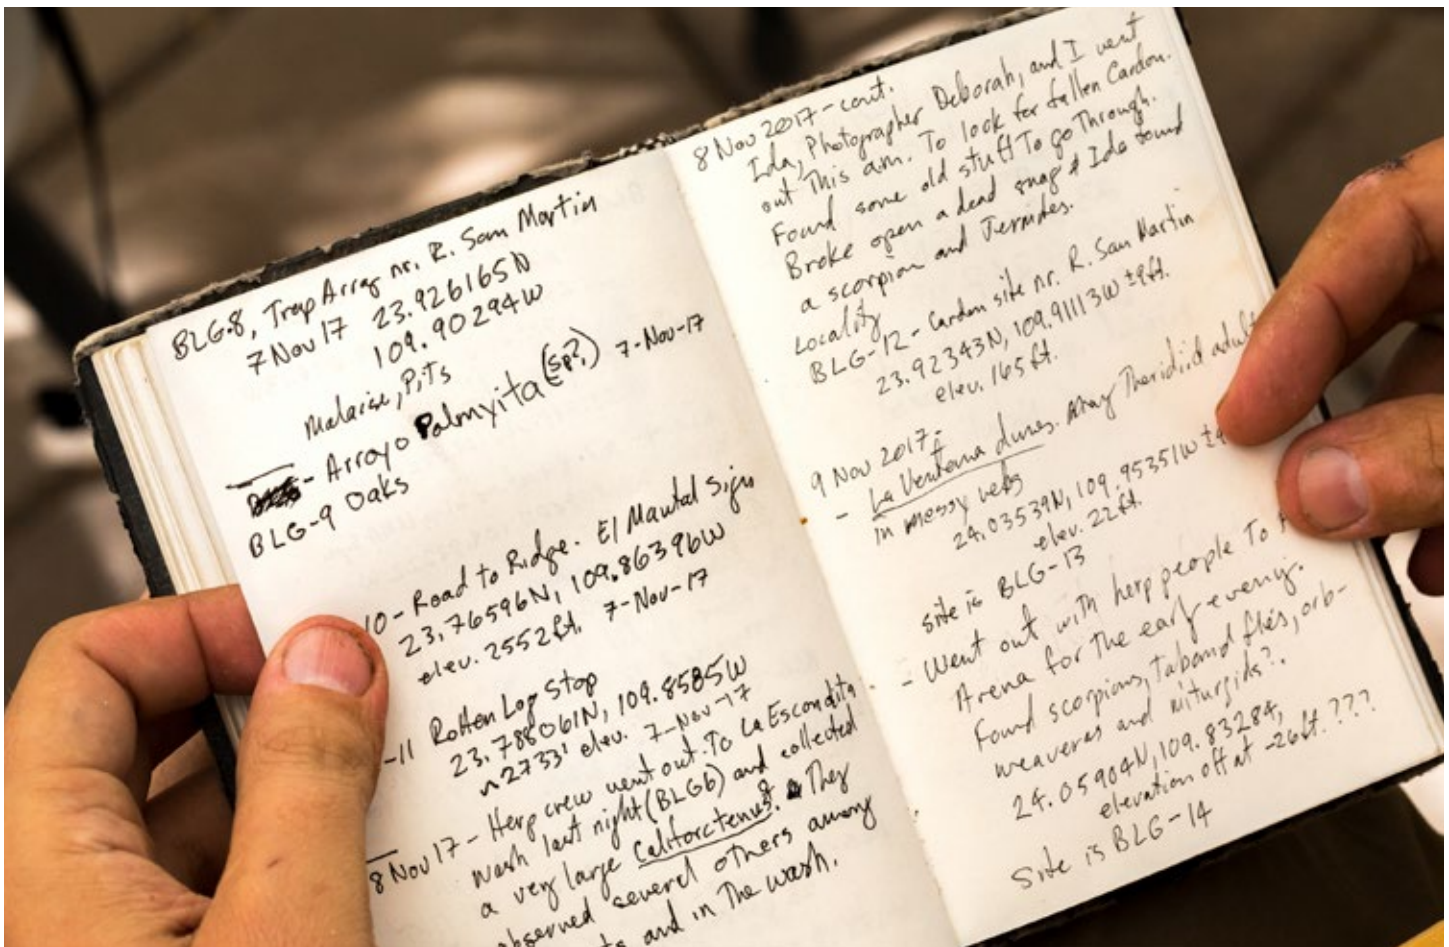 BLG-8, Trap Array nr. R. San Martin
7 Nov 17 23.926165N
109.90294W
Malaise, Pits
- Arroyo Palmyita (sp?) 7-Nov-17
BLG-9 Oaks
10 - Road to Ridge - El Mautal Sign
23.76596N, 109.86396W
elev. 2552ft. 7-Nov-17
-11 Rotten Log Stop
23.78806N, 109.8585W
~2733' elev. 7-Nov-17
8 Nov 17 - Herp crew went out To La Escondita
wash last night (BLG6) and collected
a very large Califorctenus. They
observed several others among
and in The wash.
8 Nov 2017 - cont.
Ida, Photographer Deborah, and I went
out This am. To look for fallen Cardon.
Found some old stuff To go Through.
Broke open a dead snag & Ida found
a scorpion and Termites.
Locality
BLG-12 - Cardon site nr. R. San Martin
23.92343N, 109.91113W ±9ft.
elev. 165 ft.
9 Nov 2017 -
- La Ventana dunes. Many Theridiid adult
in messy webs
24.03539N, 109.95351W ±
elev. 22 ft.
site is BLG-13
- Went out with herp people To
Arena for the early evening.
Found scorpions, tabanid flies, orb-
weavers and miturgids?.
24.05904N, 109.83284,
elevation off at -26ft.???
Site is BLG-14